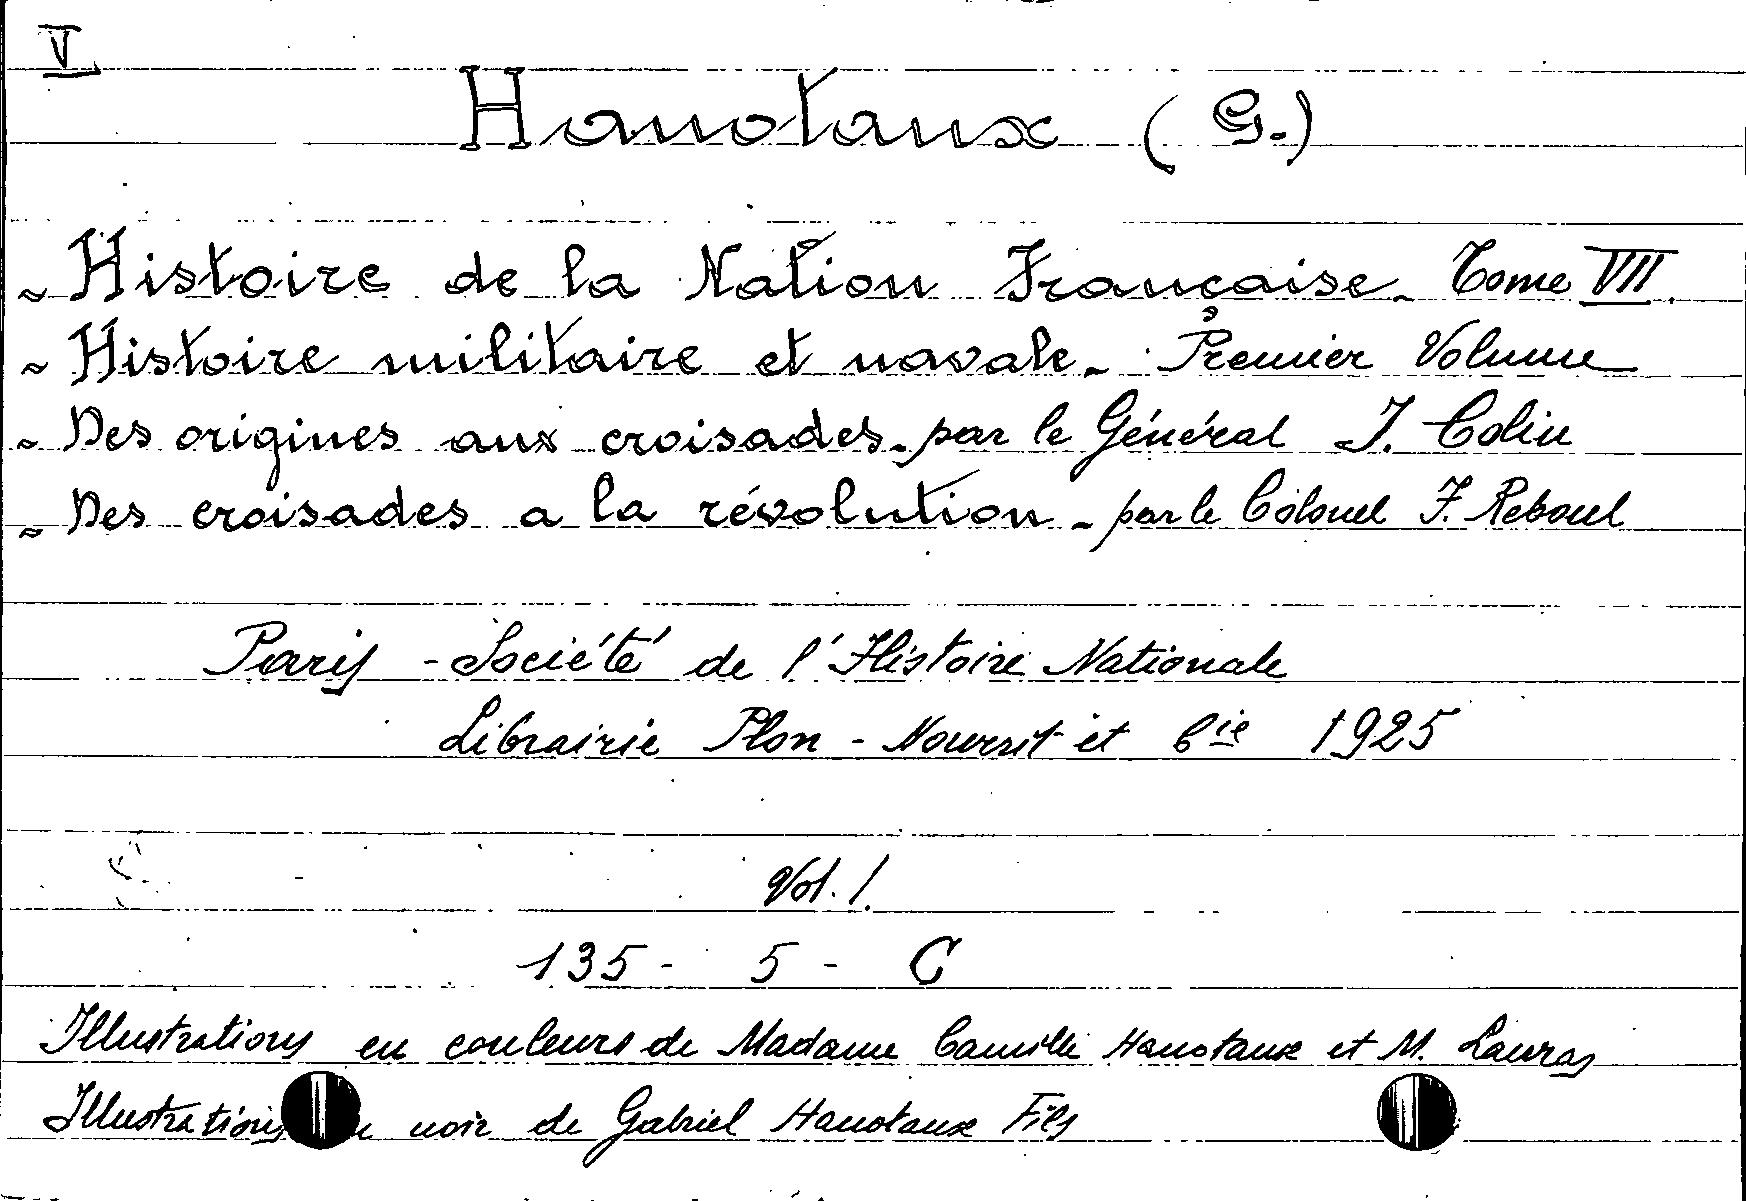 V
Hanotaux (G.)
~ Histoire de la Nation Française. Tome VII.
~ Histoire militaire et navale. Premier Volume
~ Des origines aux croisades. par le Général J. Colin
~ Des croisades a la révolution. par le Colonel F. Reboul
Paris - Société de l'Histoire Nationale
Librairie Plon - Nourrit et Cie 1925
Vol. 1.
135 - 5 - C
Illustrations en couleurs de Madame Camille Hanotaux et M. Lauras
Illustrations noir de Gabriel Hanotaux Fils